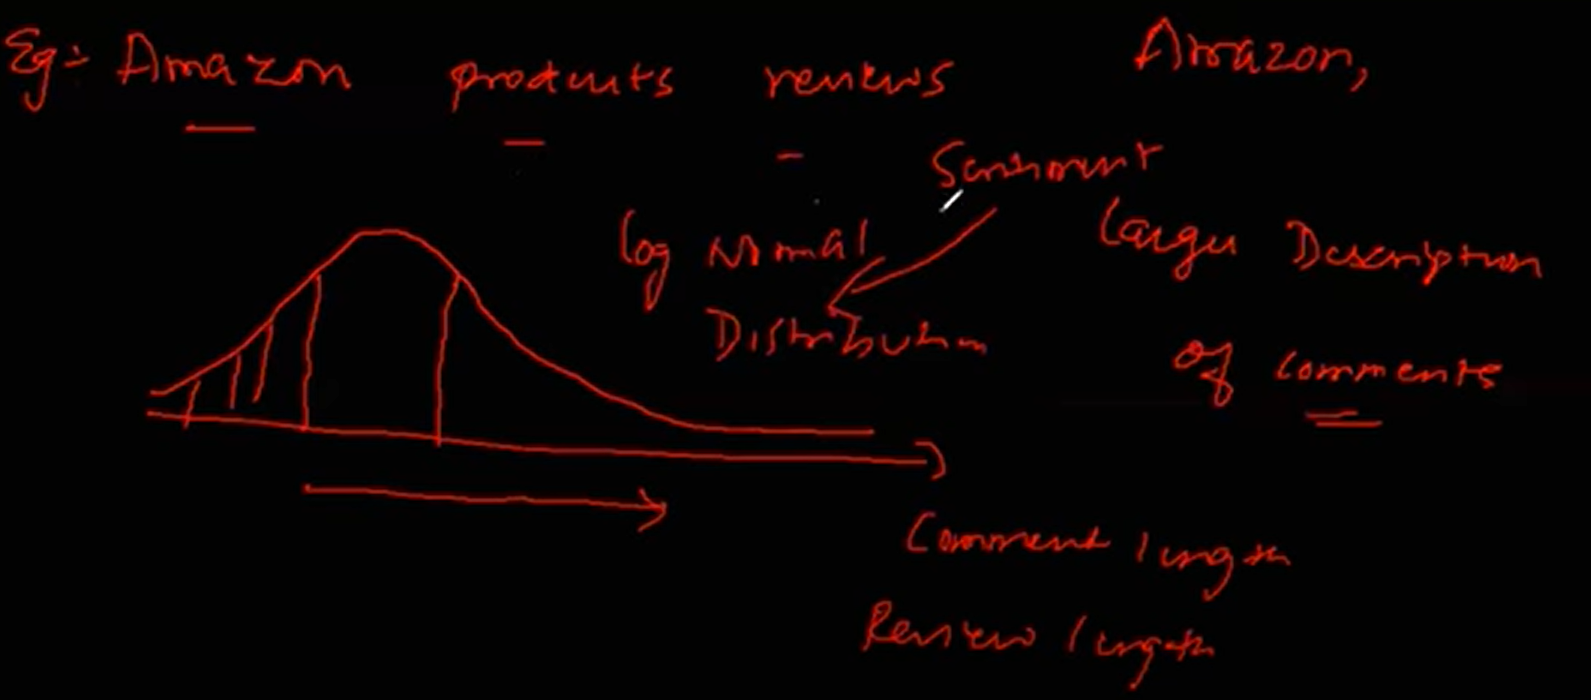 Eg:- Amazon products reviews
Amazon,
Sentiment
log Normal
Distribution
Larger Description
of comments
Comment length
Review length